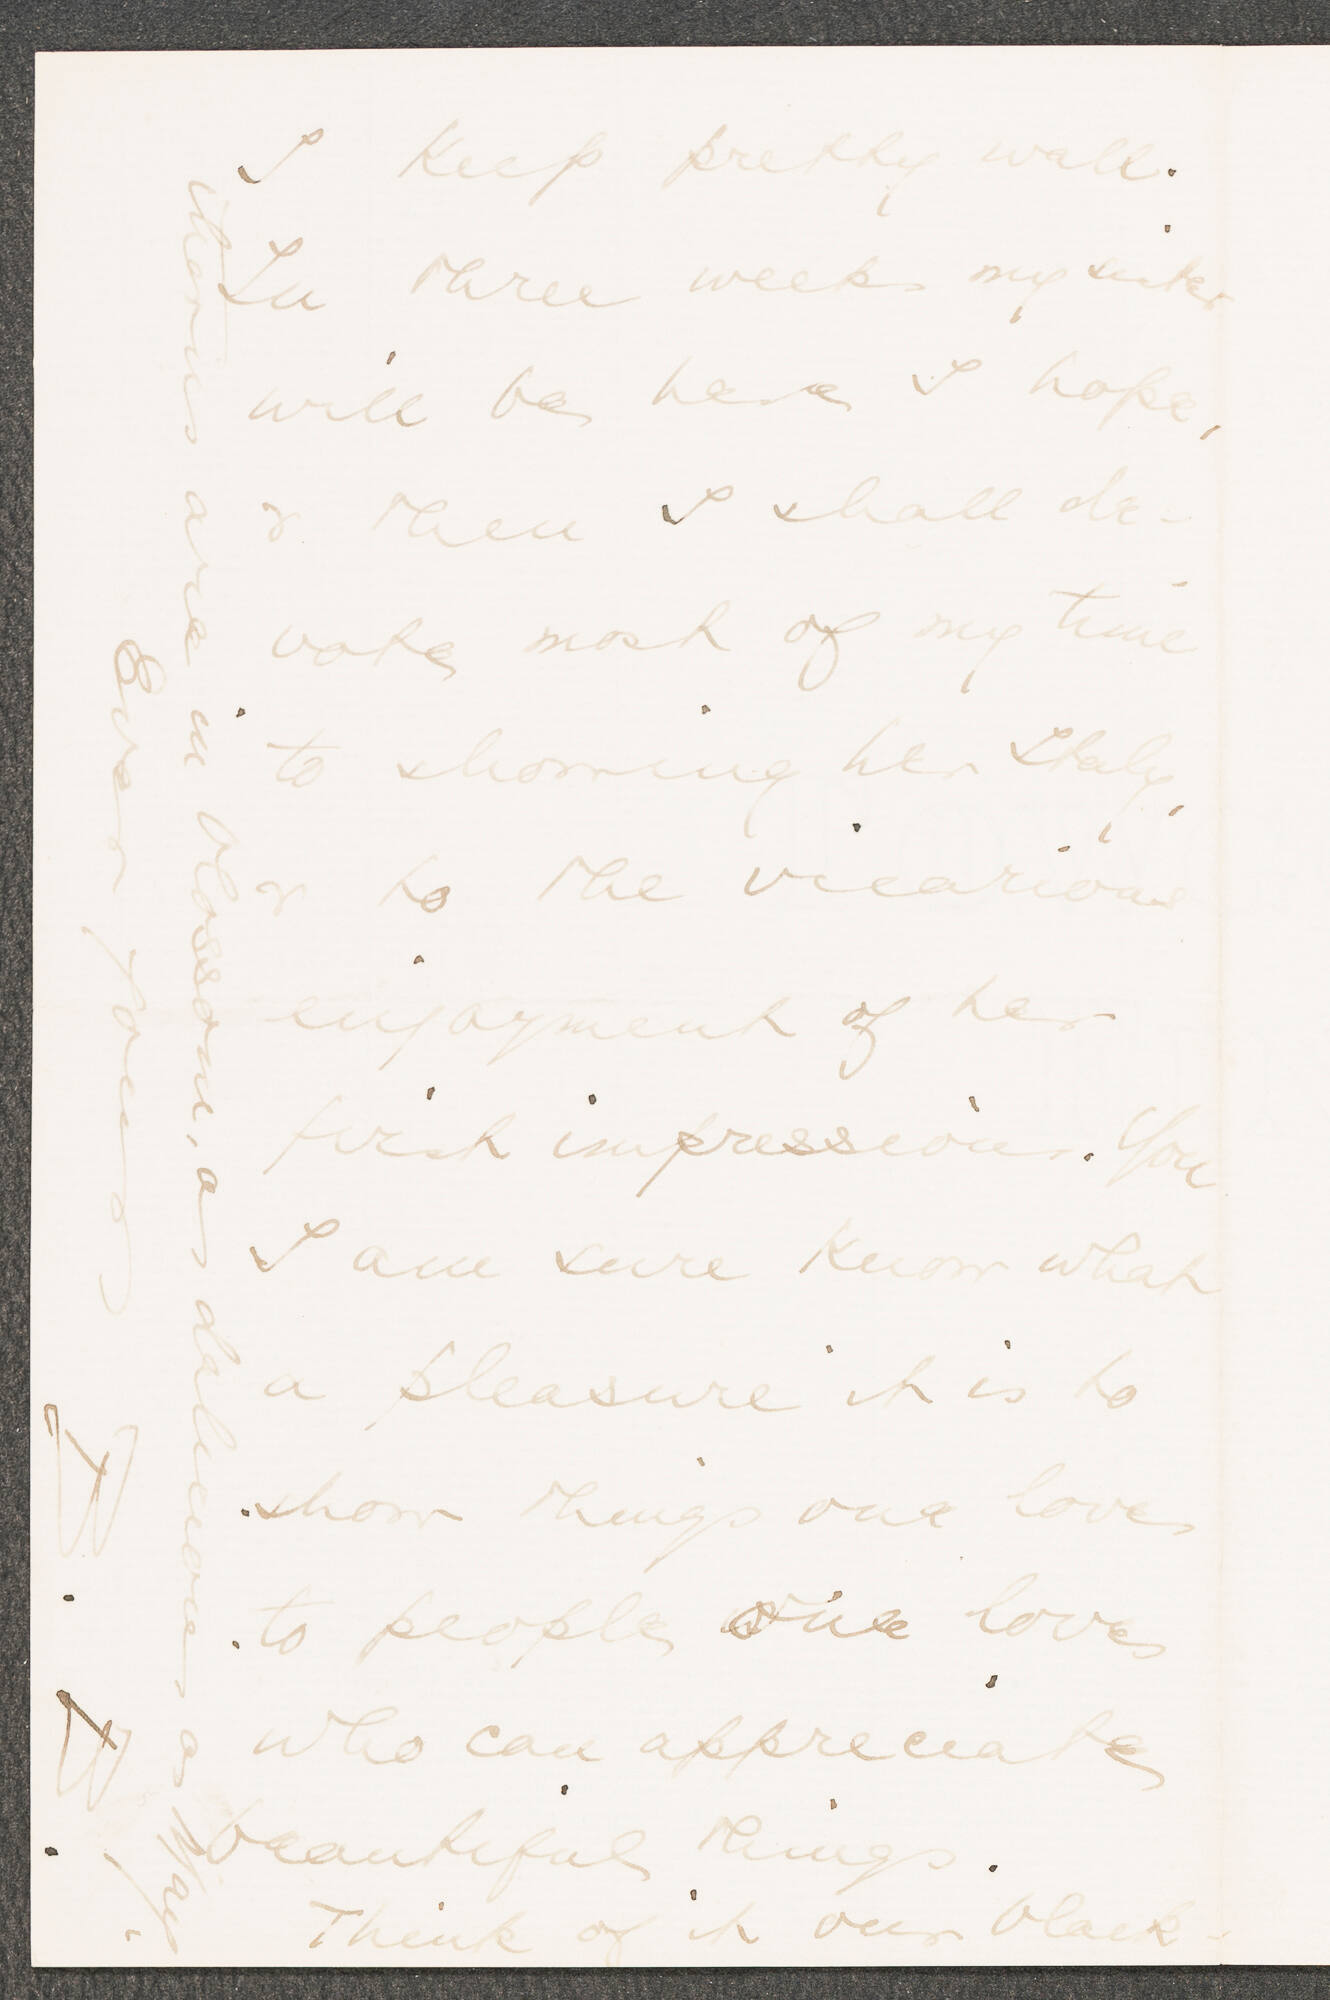 I keep pretty well.
In three weeks my sister
will be here I hope,
& then I shall de-
vote most of my time
to showing her Italy,
& to the vicarious
enjoyment of her
first impressions. You
I am sure know what
a pleasure it is to
show things one loves
to people one loves
who can appreciate
beautiful things.
Think of it our black-
thornes are in blossom, as delicious as May.
Ever yours